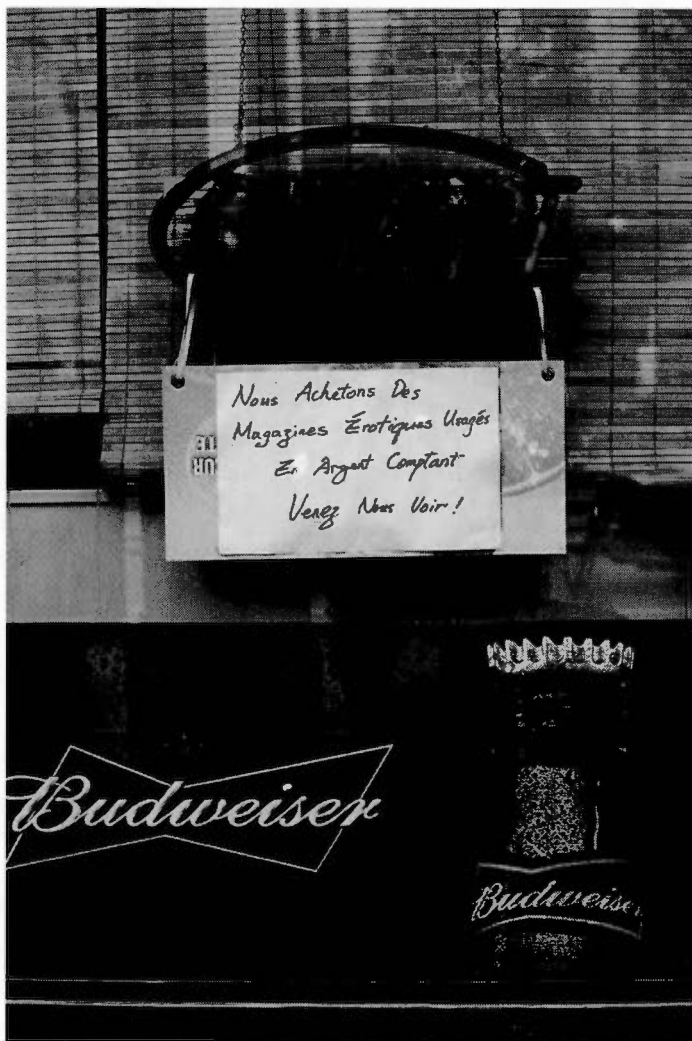 Nous Achetons Des
Magazines Érotiques Usagés
En Argent Comptant
Venez Nous Voir !
Budweiser
Budweiser